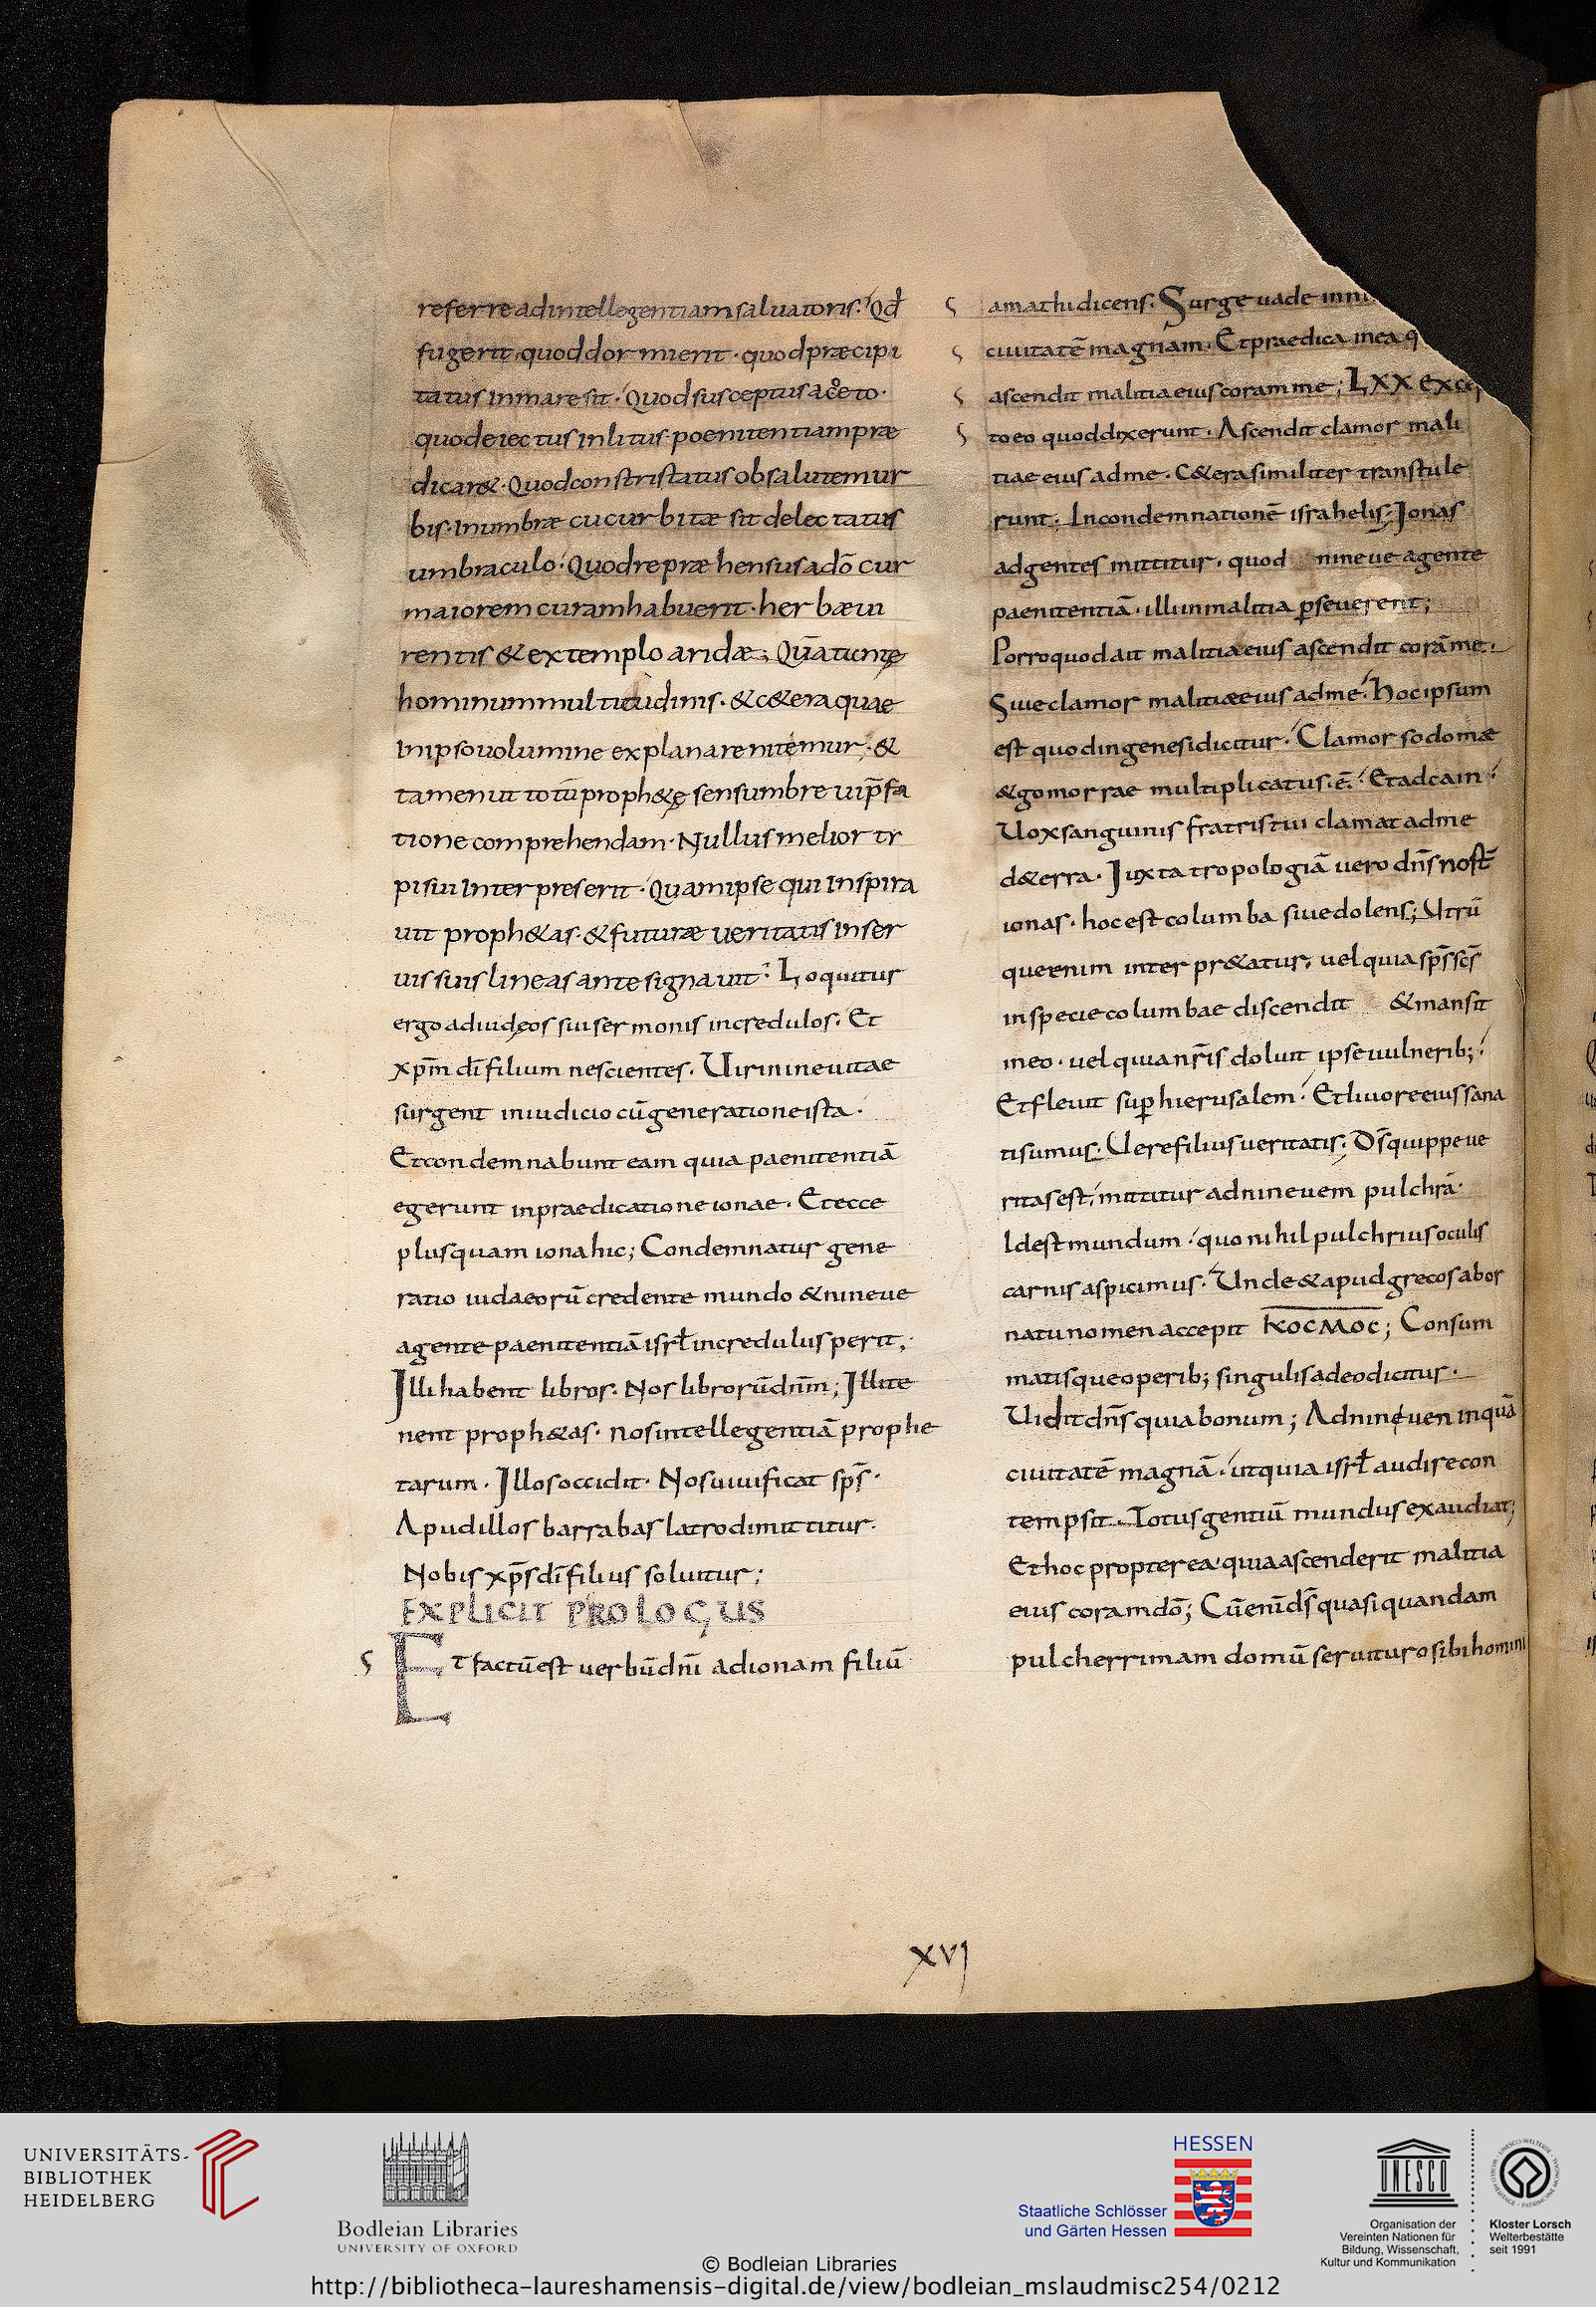 referre adintellegentiam saluatoris. Qđ
fugerit. quod dormierit. quod præcipi
tatus inmare sit. Quod susceptus a cęto.
quod eiectus inlitus. poenitentiam præ
dicar&. Quod constristatus obsalutem ur
bis. Inumbræ cucurbitæ sit delectatus
umbraculo. Quod repræhensus a dō cur
maiorem curam habuerit. herbæ ui
rentis & extemplo aridæ; Quātumę
hominum multitudinis. & c&era quae
Inipso uolumine explanare nitemur. &
tamen ut totū proph&ę sensum breui p̄fa
tione comprehendam. Nullus melior ty
pi sui Inter pres erit. Quam ipse qui Inspira
uit proph&as. & futuræ ueritatis In ser
uis suis lineas ante signauit. Loquitur
ergo ad iudęos sui sermonis incredulos. Et
xp̄m dī filium nescientes. Uiri nineuitae
surgent iniudicio cū generatione ista.
Et condemnabunt eam quia paenitentiā
egerunt inpraedicatione ionae. Et ecce
plus quam iona hic; Condemnatur gene
ratio iudaeorū credente mundo & nineue
agente paenitentiā isrł incredulus perit;
Illi habent libros. Nos librorū dn̄m; Illi te
nent proph&as. nos intellegentiā prophe
tarum. Illos occidit. Nos uiuificat sp̄s.
Apud illos barrabas latro dimittitur.
Nobis xp̄s dī filius soluitur;
EXPLICIT PROLOGUS
Et factū est uerbū dn̄i ad ionam filiū
amathi dicens. Surge uade in
ciuitatē magnam. Et praedica in ea q
ascendit malitia eius coram me; LXX excep
to eo quod dixerunt. Ascendit clamor mali
tiae eius ad me. C&era similiter transtule
runt. Incondemnationē israhelis. Ionas
ad gentes mittitur. quod nineue agente
paenitentiā. illi inmalitia ꝑseuerent;
Porro quod ait malitia eius ascendit corā me.
Siue clamor malitiæ eius ad me. Hoc ipsum
est quod ingenesi dicitur. Clamor sodomæ
& gomorrae multiplicatus .ē. Et ad cain.
Uox sanguinis fratris tui clamat ad me
de terra. Iuxta tropologiā uero dn̄s nost̄
ionas. hoc est columba siue dolens; Utrū
que enim inter pr&atur, uel quia sp̄s sc̄s
inspecie columbae discendit & mansit
ineo. uel quia nr̄is doluit ipse uulnerib;.
Et fleuit suꝑ hierusalem. Et liuore eius sana
ti sumus. Uere filius ueritatis. Ds̄ quippe ue
ritas est, mittitur ad nineuem pulchrā.
Id est mundum. quo nihil pulchrius oculis
carnis aspicimus. Unde & apud grecos ab or
natu nomen accepit KOCMOC; Consum
matisque operib; singulis adeo dicitur.
Uidit dn̄s quia bonum; Ad nineuen inquā
ciuitatē magnā. ut quia isrł audire con
tempsit. Totus gentiū mundus exaudiat;
Et hoc propterea quia ascenderit malitia
eius coram dō; Cū enī ds̄ quasi quandam
pulcherrimam domū seruituro sibi homini
xvj
UNIVERSITÄTS-
BIBLIOTHEK
HEIDELBERG
Bodleian Libraries
UNIVERSITY OF OXFORD
HESSEN
Staatliche Schlösser
und Gärten Hessen
UNESCO
Organisation der
Vereinten Nationen für
Bildung, Wissenschaft,
Kultur und Kommunikation
Kloster Lorsch
Welterbestätte
seit 1991
© Bodleian Libraries
http://bibliotheca-laureshamensis-digital.de/view/bodleian_mslaudmisc254/0212